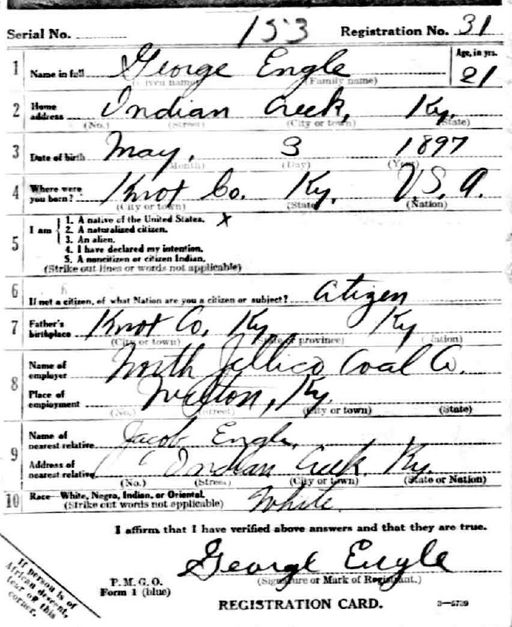 Serial No. 153 Registration No. 31
1 Name in full George Engle Age, in yrs. 21
(Given name) (Family name)
2 Home address Indian Creek, Ky.
(No.) (Street) (City or town) (State)
3 Date of birth May, 3 1897
(Month) (Day) (Year)
4 Where were you born? Knot Co. Ky. U.S.A.
(City or town) (State) (Nation)
5 I am
1. A native of the United States. x
2. A naturalized citizen.
3. An alien.
4. I have declared my intention.
5. A noncitizen or citizen Indian.
(Strike out lines or words not applicable)
6 If not a citizen, of what Nation are you a citizen or subject? Citizen
7 Father's birthplace Knot Co. Ky Ky
(City or town) (State or province) (Nation)
8 Name of employer North Jellico Coal Co.
Place of employment Ky.
(No.) (Street) (City or town) (State)
9 Name of nearest relative Jacob Engle,
Address of nearest relative Indian Creek Ky.
(No.) (Street) (City or town) (State or Nation)
10 Race—White, Negro, Indian, or Oriental. White.
(Strike out words not applicable)
I affirm that I have verified above answers and that they are true.
George Engle
(Signature or Mark of Registrant.)
P. M. G. O.
Form 1 (blue)
REGISTRATION CARD. 3—5739
If person is of
African descent,
tear off this
corner.